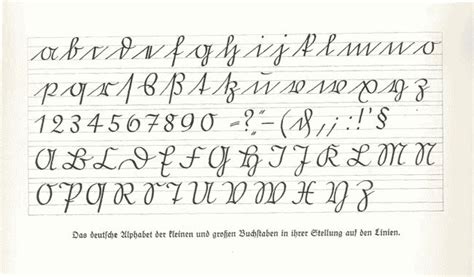 a b c d e f g h i j k l m n o
p q r ſ s ß t z u v w x y z
1 2 3 4 5 6 7 8 9 0 =?"–( ) , ; : ! ' §
A B C D E F G H I J K L M N
O P Q R S T U V W X Y Z
Das deutsche Alphabet der kleinen und großen Buchstaben in ihrer Stellung auf den Linien.